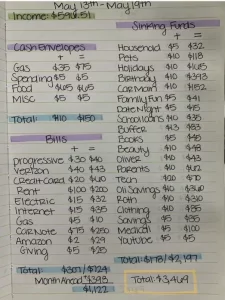 May 13th - May 19th
Income: $596.51
Cash Envelopes
+ =
Gas $35 $75
Spending $5 $5
Food $65 $65
MISC $5 $5
Total: $110 $150
Bills
+ =
progressive $30 $40
Verizon $40 $43
Credit Card $20 $60
Rent $100 $200
Electric $15 $32
Internet $15 $35
Gas $5 $10
Car Note $75 $250
Amazon $2 $29
Giving $5 $25
Total: $307/$724
Month Ahead: $398
$1,122
Sinking Funds
+ =
Household $5 $32
Pets $10 $118
Holidays $10 $165
Birthday $10 $393
Car Maint $10 $152
Family Fun $5 $41
Date Night $5 $5
School $10 $35
Buffer $13 $53
Books $5 $45
Beauty $10 $48
Oliver $10 $43
Parents $10 $62
Tech $20 $70
Oil Savings $10
Roth $10 $30
Clothing $10 $55
Savings $5 $35
Medical $5 $100
Youtube $5 $5
Total: $178/$2,197
Total: $3,469